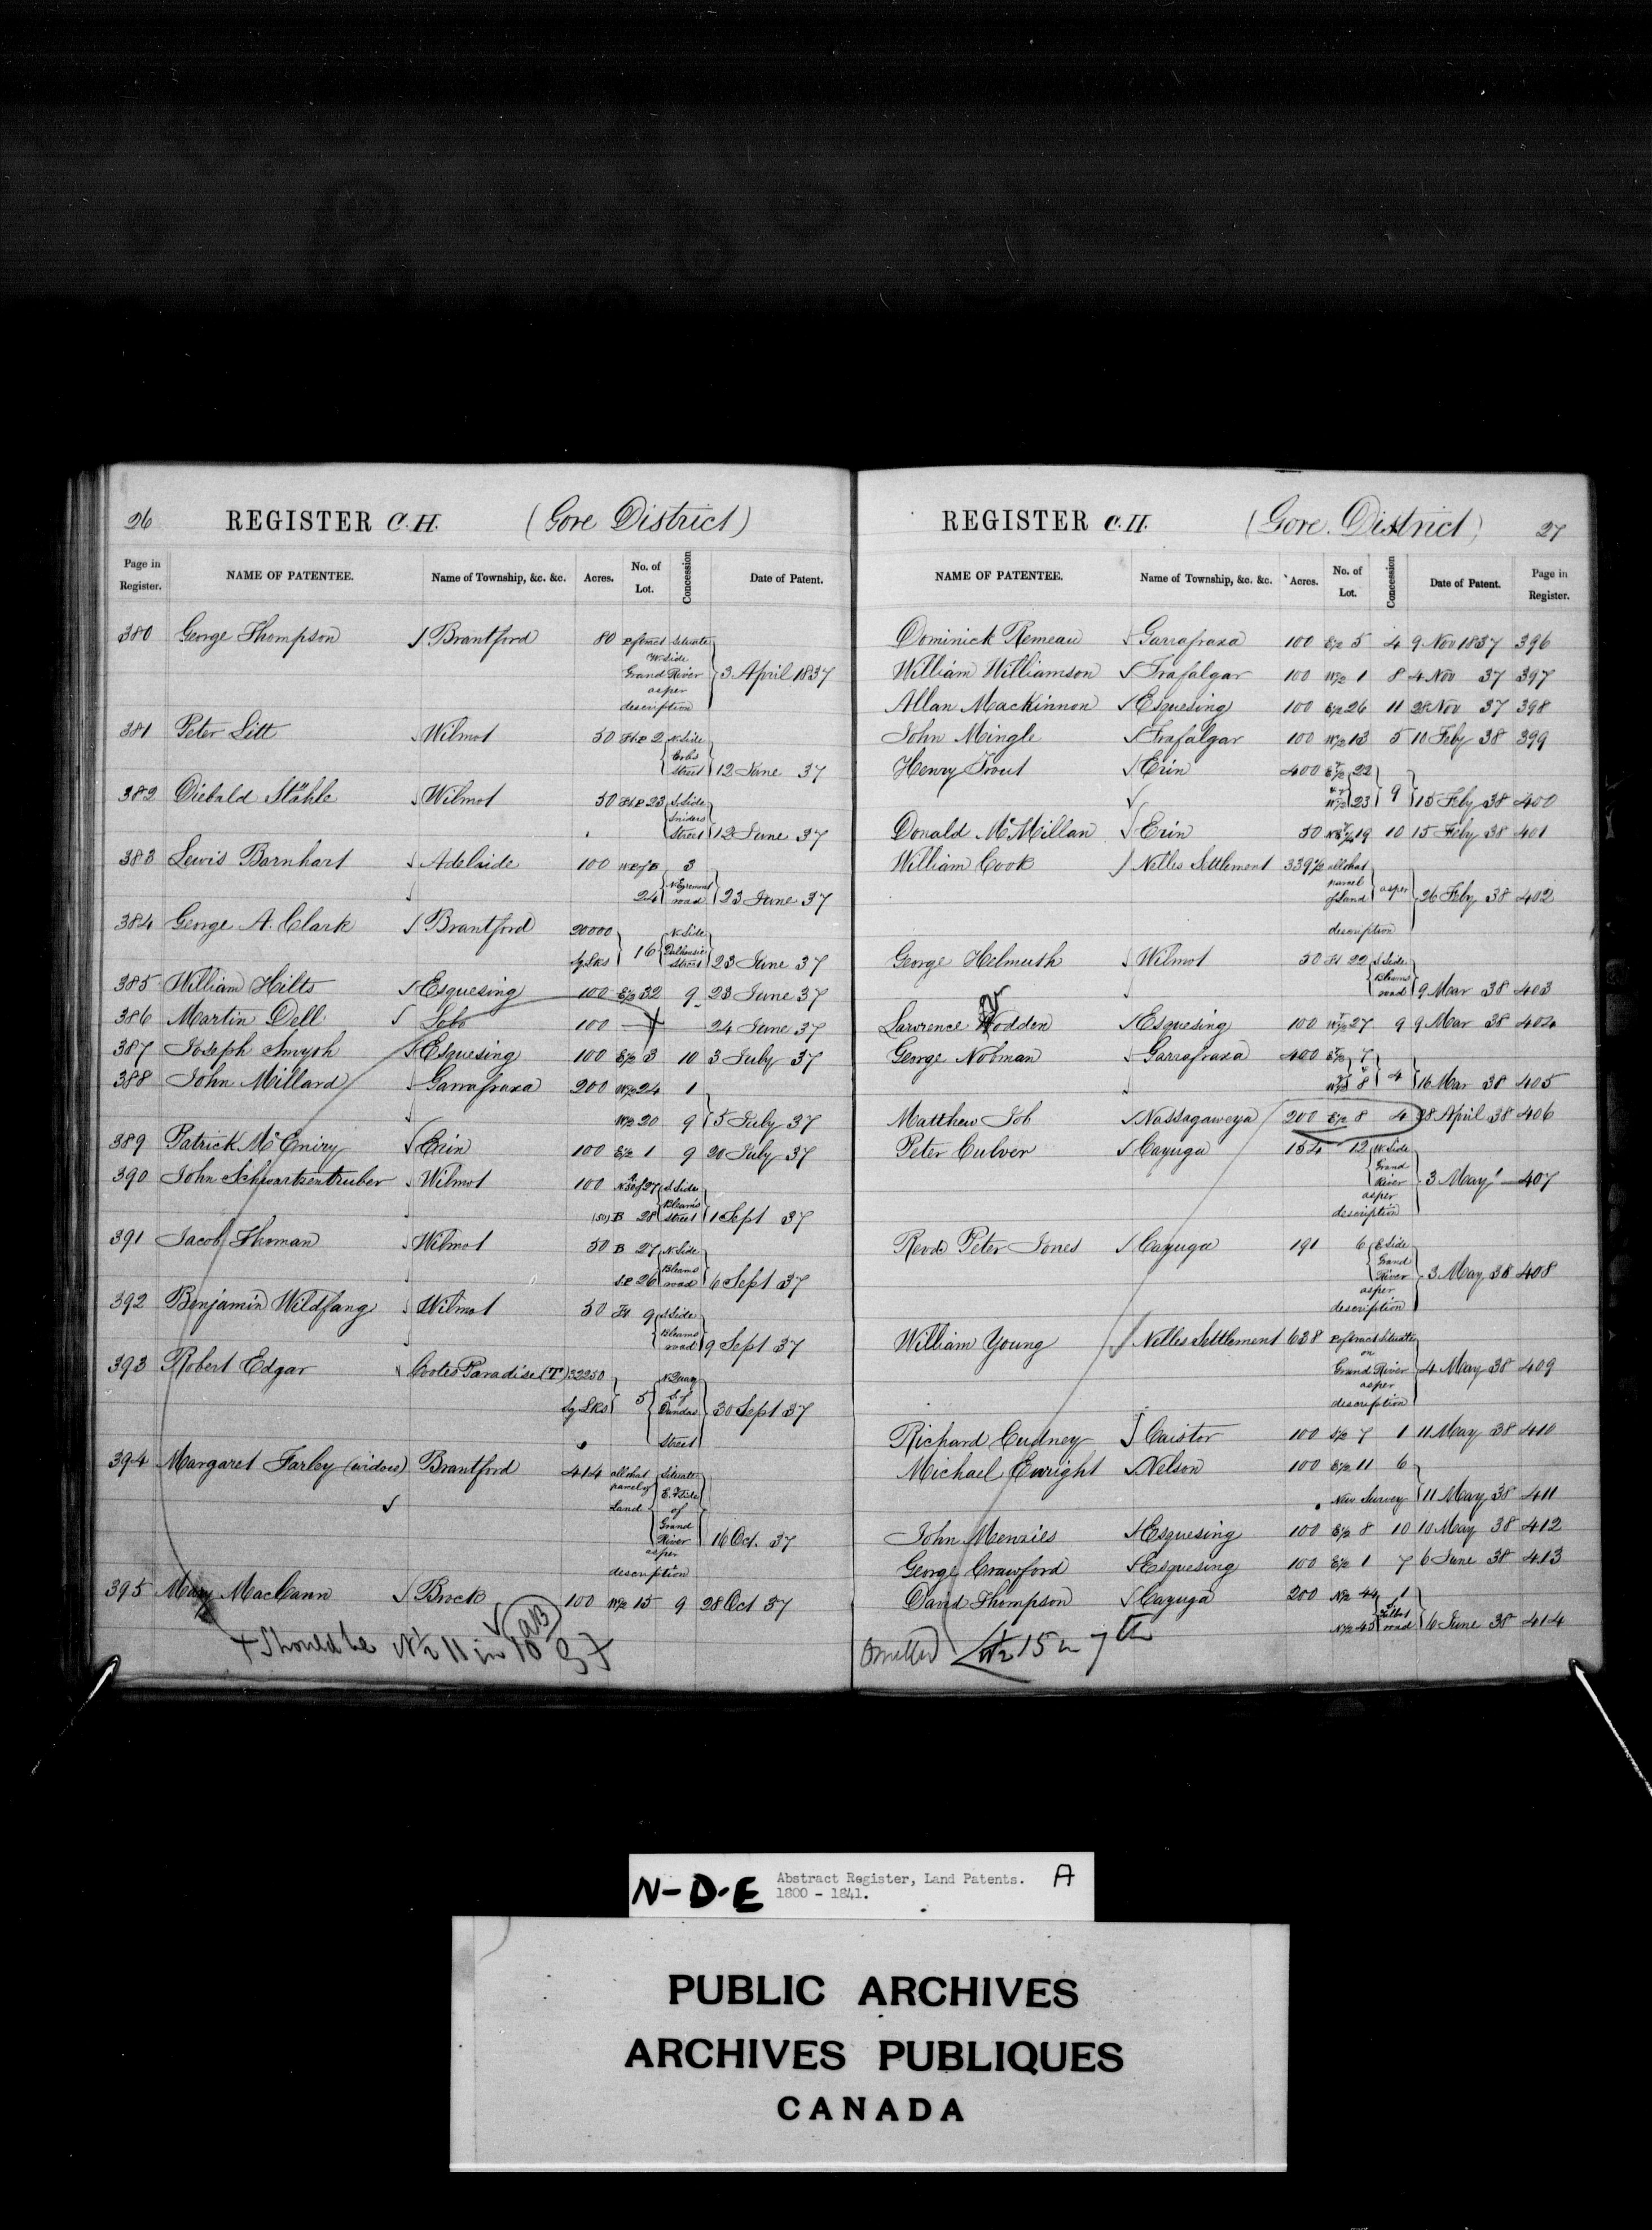 26 REGISTER C. H. (Gore District)
Page in Register. NAME OF PATENTEE. Name of Township, &c. &c. Acres. No. of Lot. Concession Date of Patent.
380 George Thompson Brantford 80 Situate
W. Side
Grand River 3 April 1837
as per
description
381 Peter Litt Wilmot 50 2 N. Side
Erb's
Street 12 June 37
382 Diebald Stähle Wilmot 50 23 S. Side
Sniders
Street 12 June 37
383 Lewis Barnhart Adelaide 100 3
24 N Egremont road 23 June 37
384 George A. Clark Brantford 20000 N. Side
Sq Lks 16 Dalhousie Street 23 June 37
385 William Hilts Esquesing 100 E½ 32 9 23 June 37
386 Martin Dell Lobo 100 + 24 June 37
387 Joseph Smyth Esquesing 100 E½ 3 10 3 July 37
388 John Millard Garrafraxa 200 W½ 24 1
W½ 20 9 5 July 37
389 Patrick McEmiry Erin 100 E½ 1 9 20 July 37
390 John Schwartzentruber Wilmot 100 27 S. Side
Bleams
(50) B 28 Street 1 Sept 37
391 Jacob Thoman Wilmot 50 B 27 N. Side
Bleams
26 road 6 Sept 37
392 Benjamin Wildfang Wilmot 50 9 S. Side
Bleams
road 9 Sept 37
393 Robert Edgar Cootes Paradise (T) 32250
Sq Lks 5 Dundas 30 Sept 37
Street
394 Margaret Farley (widow) Brantford 414 all that Situate
parcel of E. Side
Land of
Grand
River 16 Oct. 37
as per
description
395 Mary MacCann Brock 100 W½ 15 9 28 Oct 37
+ Should be N½ 11 in 10
REGISTER C. H. (Gore District) 27
NAME OF PATENTEE. Name of Township, &c. &c. Acres. No. of Lot. Concession Date of Patent. Page in Register.
Dominick Remeau Garrafraxa 100 E½ 5 4 9 Nov 1837 396
William Williamson Trafalgar 100 W½ 1 8 4 Nov 37 397
Allan MacKinnon Esquesing 100 E½ 26 11 28 Nov 37 398
John Mingle Trafalgar 100 W½ 13 5 10 Feby 38 399
Henry Trout Erin 400 E½ 22
W½ 23 9 15 Feby 38 400
Donald McMillan Erin 50 19 10 15 Feby 38 401
William Cook Nelles Settlement 339½ all that
parcel
of Land as per 26 Feby 38 402
description
George Helmuth Wilmot 50 22 S. Side
Bleams
road 9 Mar 38 403
Lawrence Hodden Esquesing 100 W½ 27 9 9 Mar 38 404
George Nobman Garrafraxa 400 E½ 7
W½ 8 4 16 Mar 38 405
Matthew Job Nassagaweya 200 E½ 8 4 28 April 38 406
Peter Culver Cayuga 154 12 W. Side
Grand
River 3 May 407
as per
description
Revd. Peter Jones Cayuga 191 6 E Side
Grand
River 3 May 38 408
as per
description
William Young Nelles Settlement 638 Situate
on
Grand River 4 May 38 409
as per
description
Richard Cudney Caistor 100 S½ 7 1 11 May 38 410
Michael Enright Nelson 100 E½ 11 6
New Survey 11 May 38 411
John Menzies Esquesing 100 E½ 8 10 10 May 38 412
George Crawford Esquesing 100 E½ 1 7 6 June 38 413
David Thompson Cayuga 200 N½ 44 1
N½ 45 Talbot road 6 June 38 414
Omitted W½ 15 in 7th
N-D-E Abstract Register, Land Patents. A
1800 - 1841.
PUBLIC ARCHIVES
ARCHIVES PUBLIQUES
CANADA